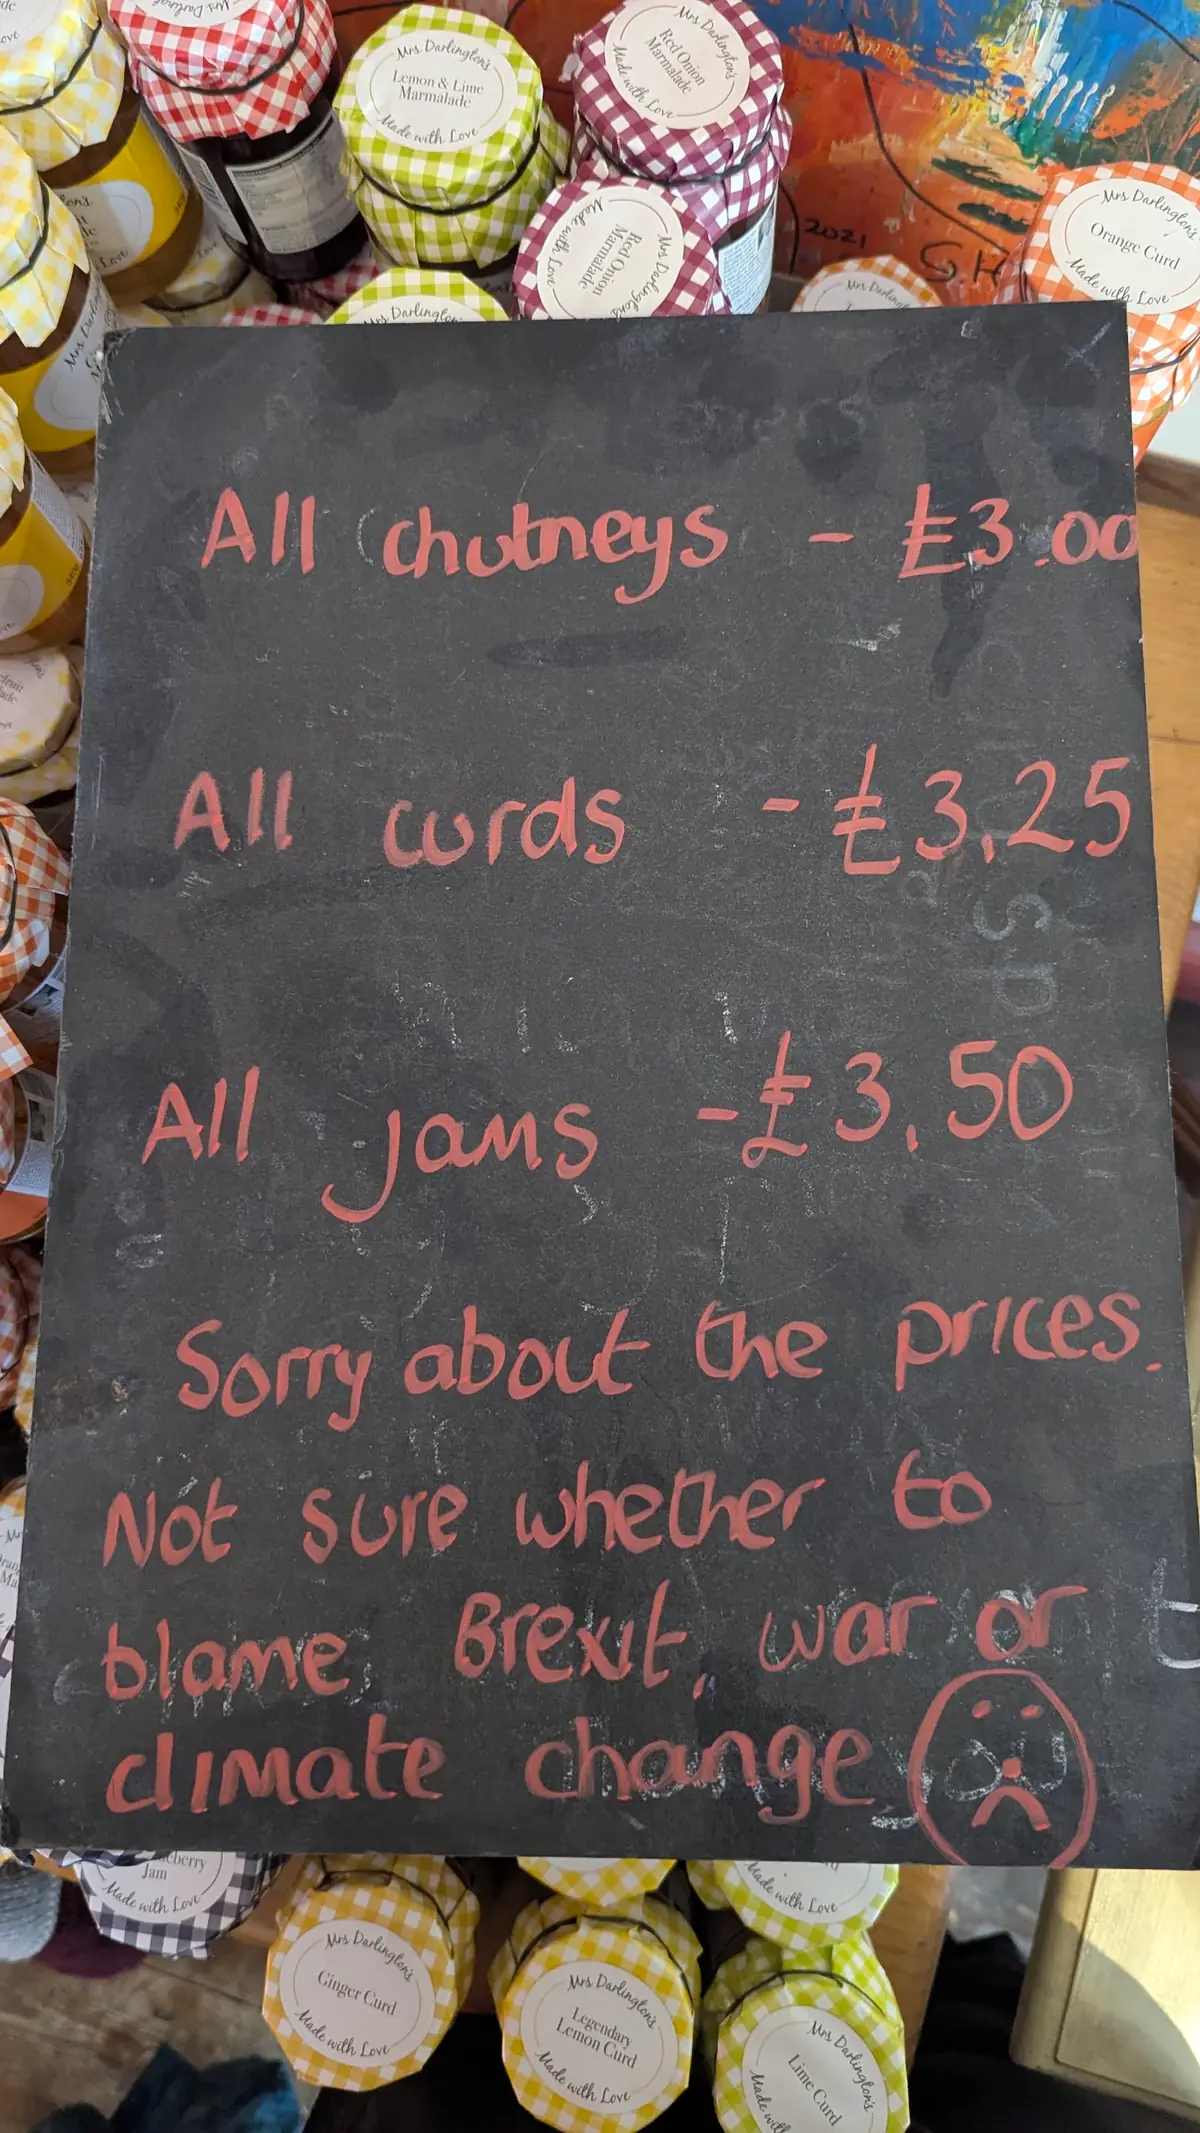 Mrs Darlington's
Lemon & Lime
Marmalade
Made with Love
Mrs Darlington's
Red Onion
Marmalade
Made with Love
Mrs Darlington's
Red Onion
Marmalade
Made with Love
Mrs Darlington's
Orange Curd
Made with Love
Mrs Darlington's
2021
All chutneys - £3.00
All curds - £3.25
All jams - £3.50
Sorry about the prices.
Not sure whether to
blame Brexit, war or
climate change
Jam
Made with Love
Mrs Darlington's
Ginger Curd
Made with Love
Mrs Darlington's
Legendary
Lemon Curd
Made with Love
Made with Love
Mrs Darlington's
Lime Curd
Made with